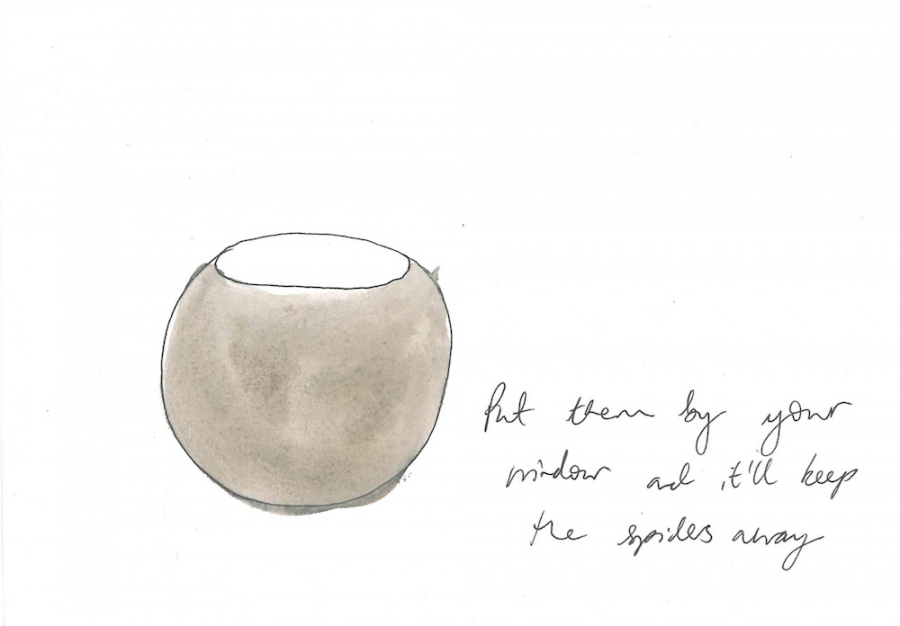 Put them by your
window and it'll keep
the spiders away